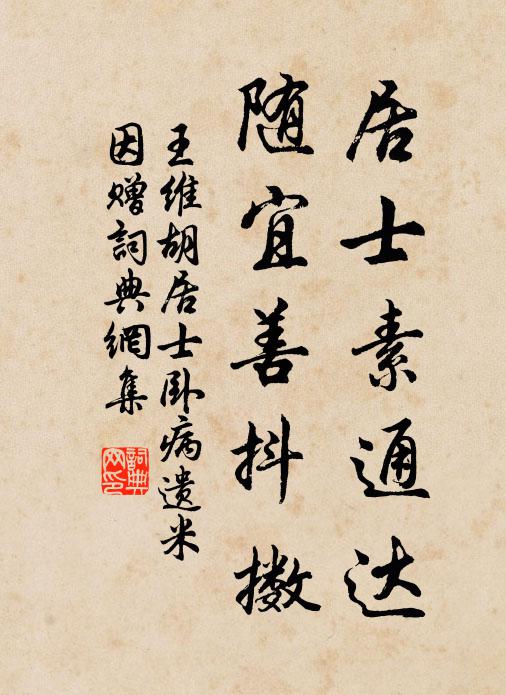 居士素通达
随宜善抖擞
王维胡居士卧病遗米
因赠词典網集
詞典網印